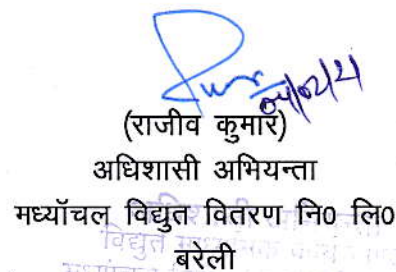 04/02/21
(राजीव कुमार)
अधिशासी अभियन्ता
मध्यॉचल विद्युत वितरण नि0 लि0
बरेली